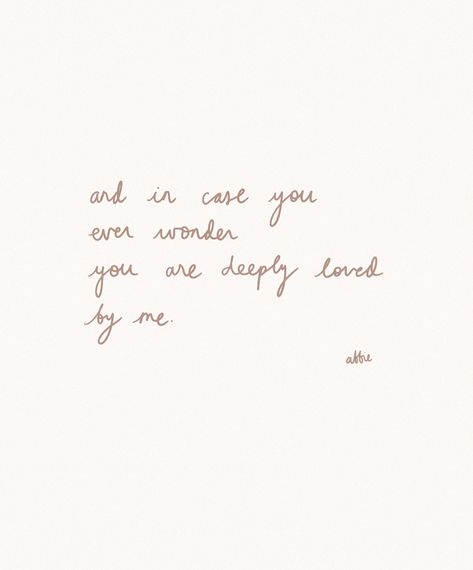 and in case you
ever wonder
you are deeply loved
by me.
abbie